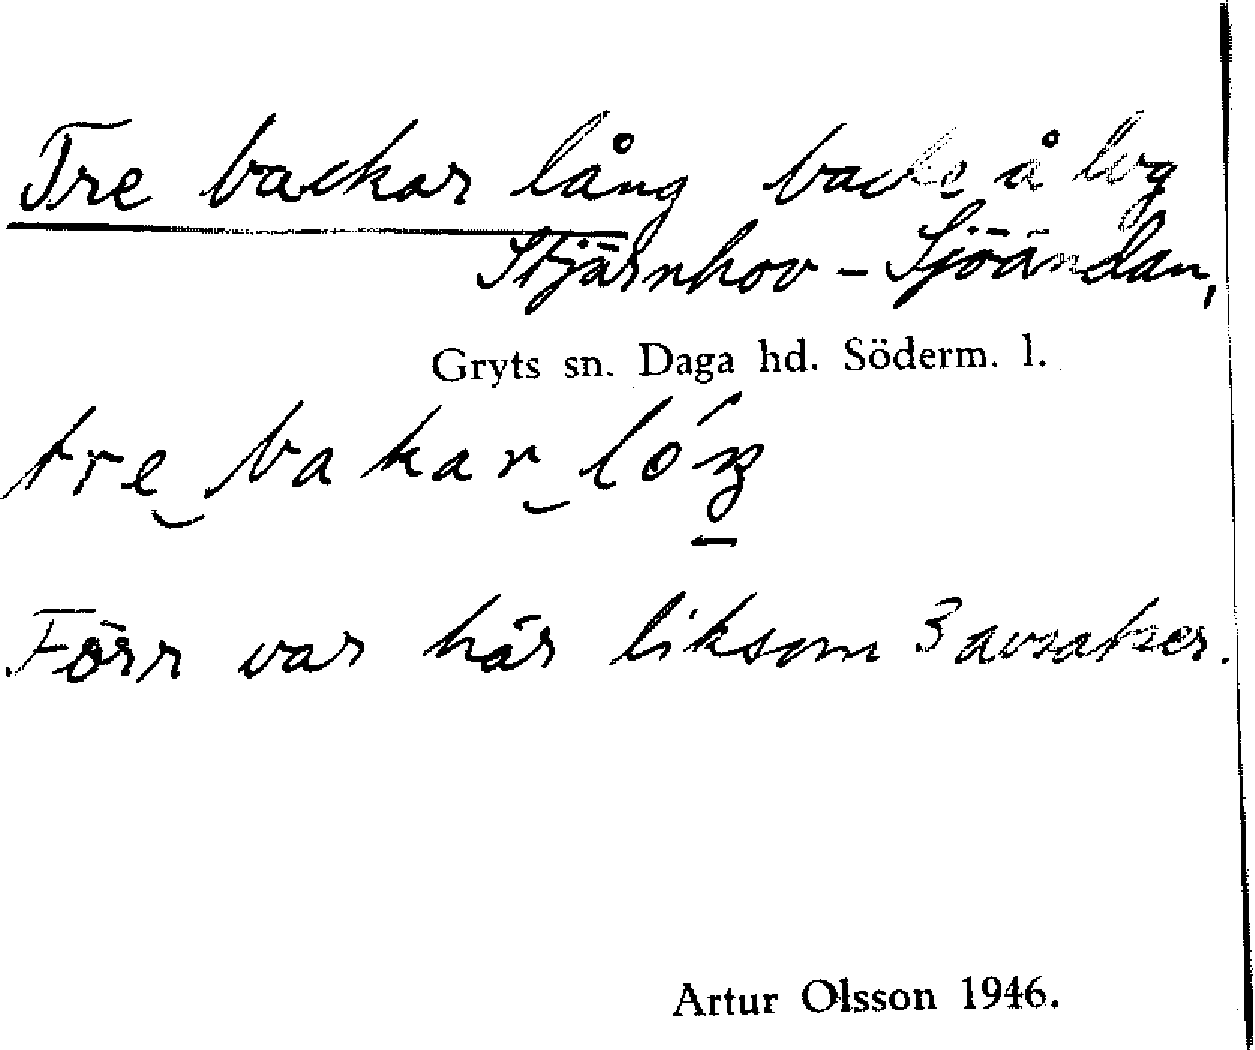 Tre backar lång backe å lvg
Stjärnhov – Sjöändan,
Gryts sn. Daga hd. Söderm. l.
tre bakar lóŋ
Förr var här liksom 3 avsatser.
Artur Olsson 1946.